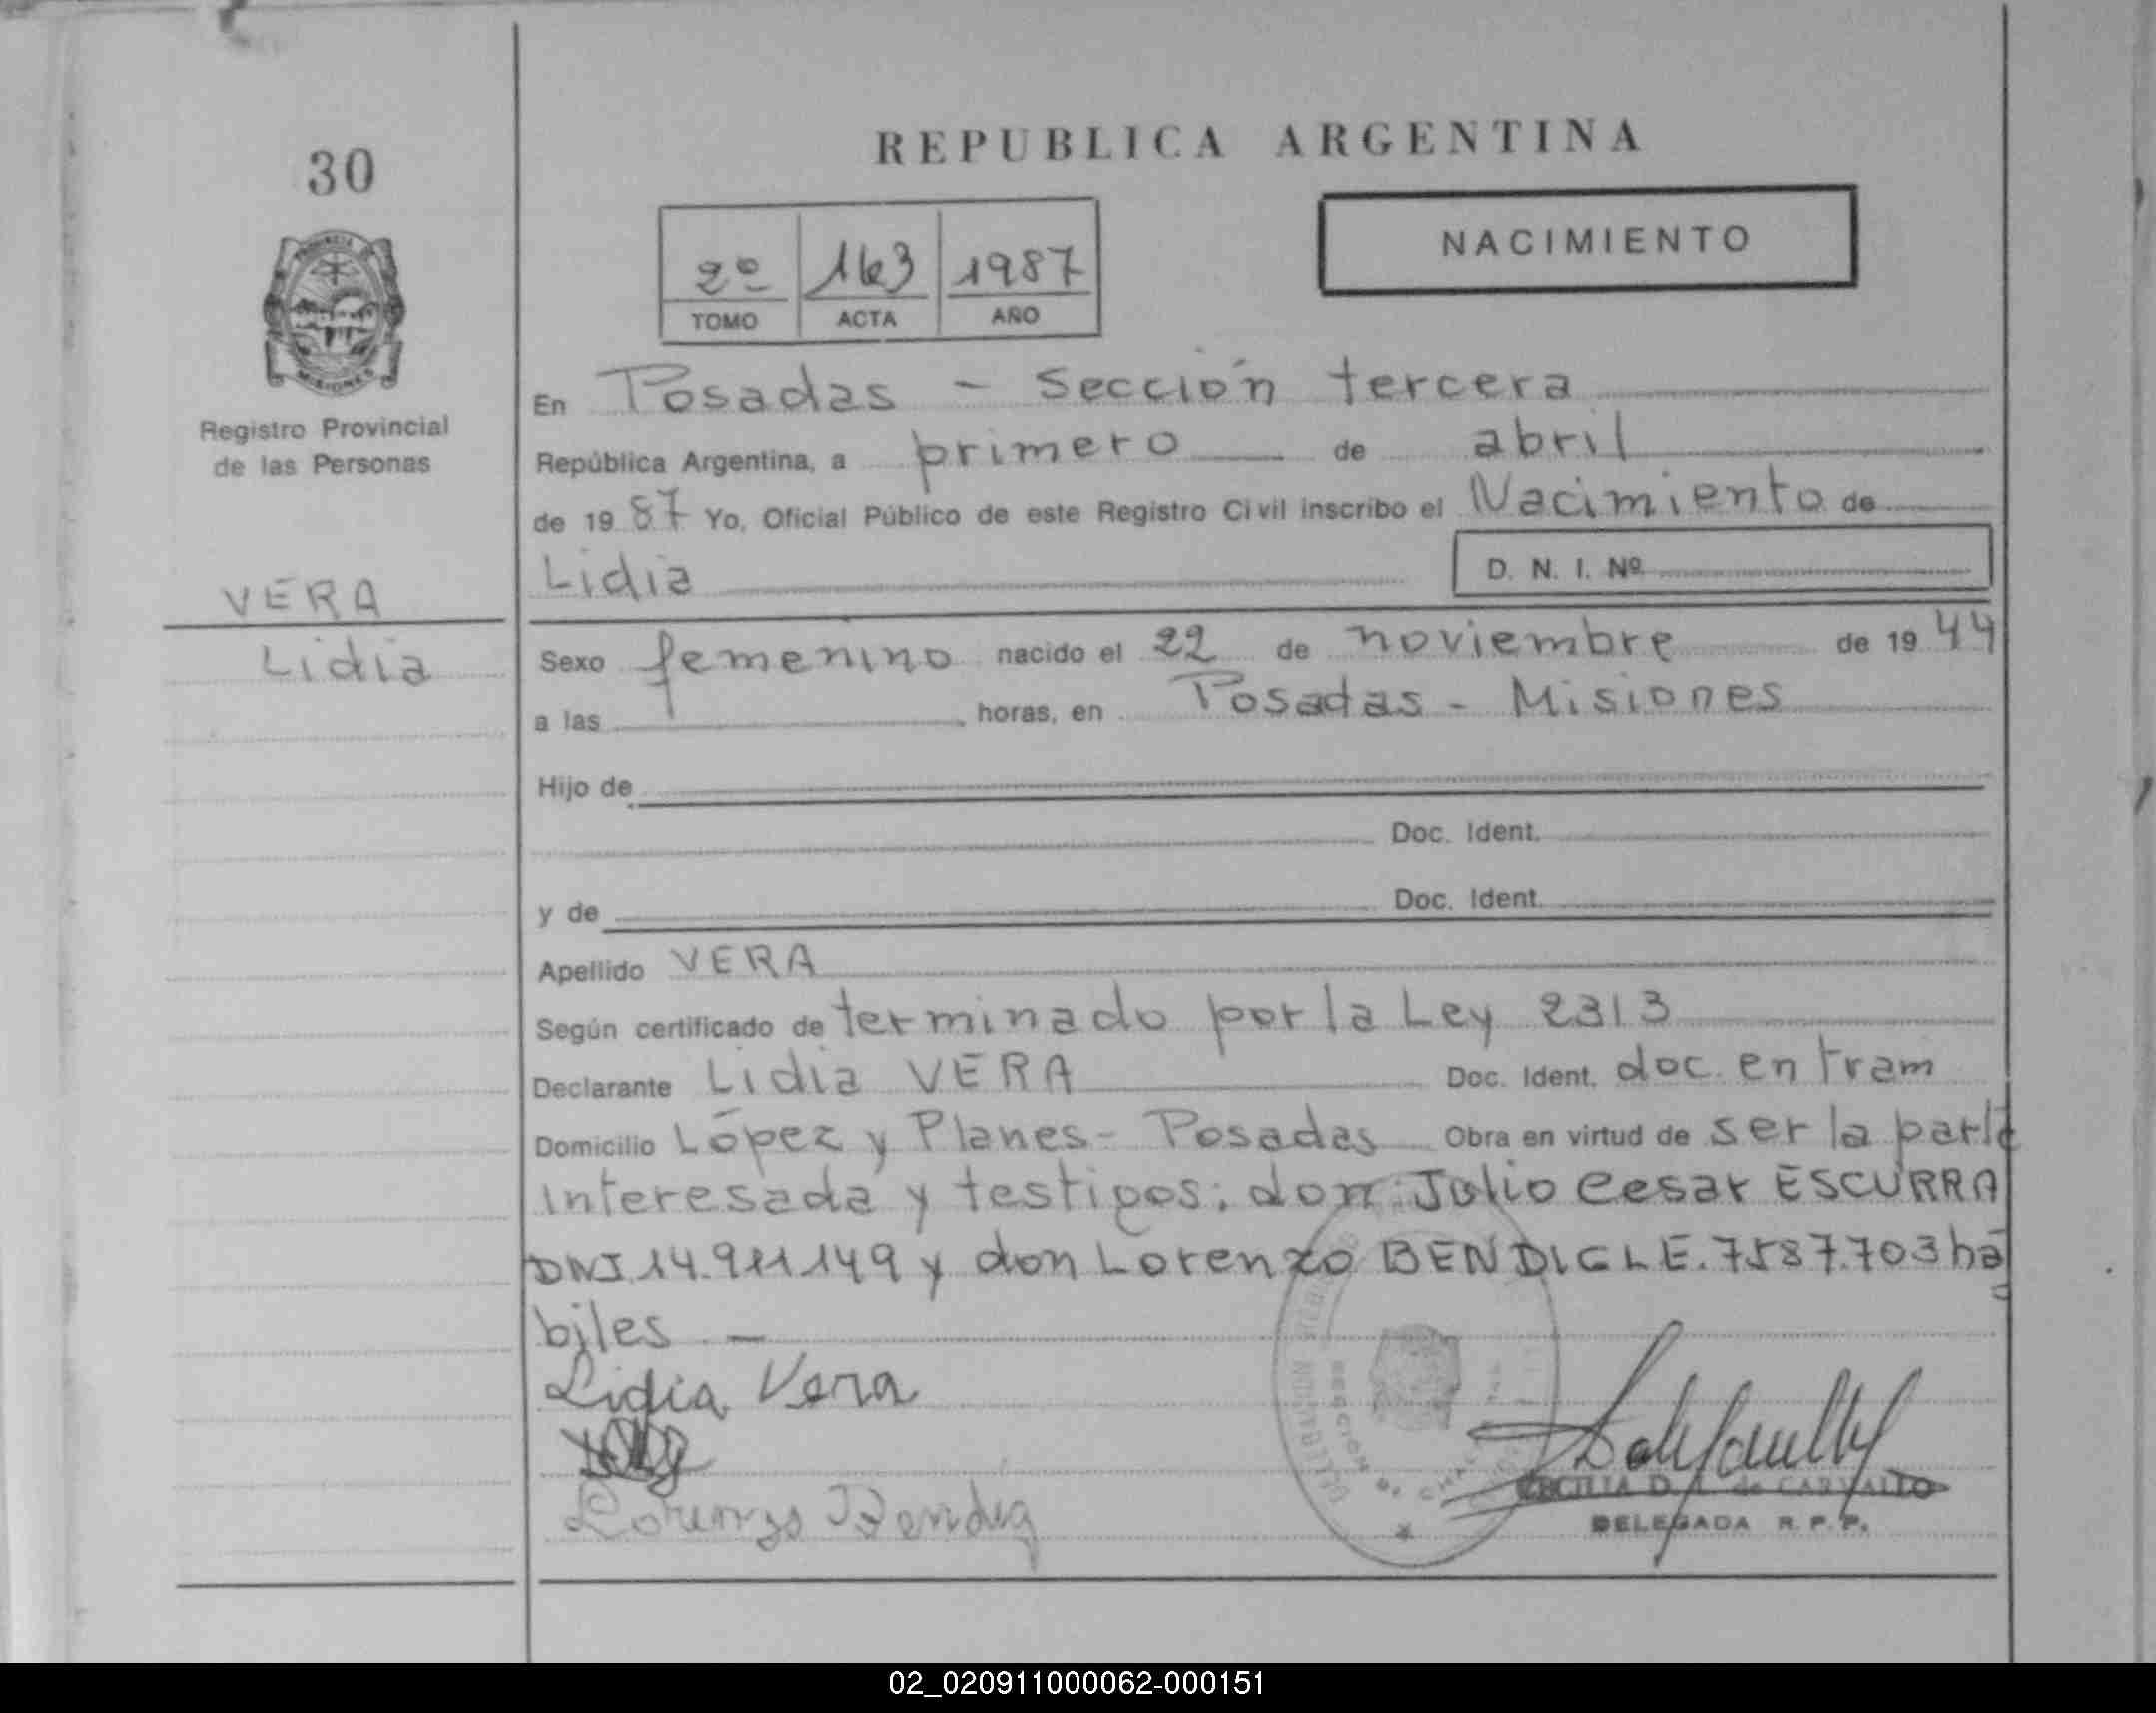 REPUBLICA ARGENTINA
30
NACIMIENTO
2º 163 1987
TOMO ACTA AÑO
MISIONES
Registro Provincial
de las Personas
VERA
Lidia
En Posadas - sección tercera
República Argentina, a primero de abril
de 1987 Yo, Oficial Público de este Registro Civil inscribo el Nacimiento de
Lidia D. N. I. Nº
Sexo femenino nacido el 22 de noviembre de 1944
a las horas, en Posadas - Misiones
Hijo de
Doc. Ident.
y de Doc. Ident.
Apellido VERA
Según certificado de terminado por la Ley 2313
Declarante Lidia VERA Doc. Ident. doc. en tram
Domicilio López y Planes - Posadas Obra en virtud de ser la parte
interesada y testigos: don: Julio Cesar ESCURRA
DNI.14.911.149 y don Lorenzo BENDIG L.E. 7587.703 há
biles -
Lidia Vera
Lorenzo Bendig
CECILIA D. de CARVALLO
DELEGADA R. P. P.
02_020911000062-000151